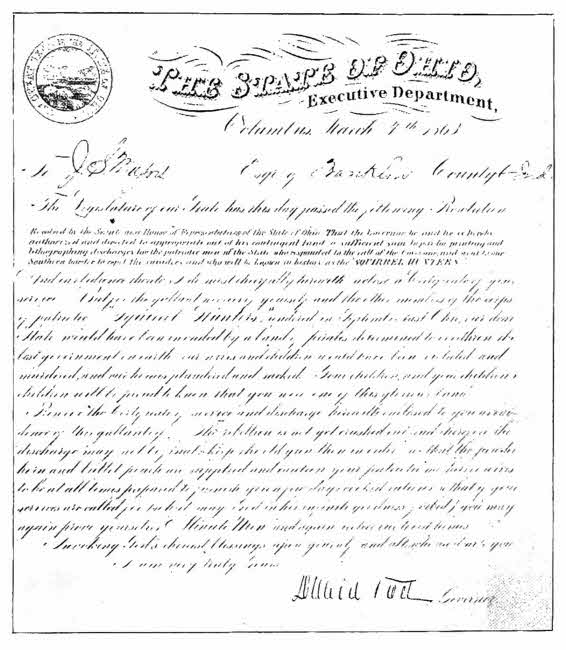 THE STATE OF OHIO,
Executive Department,
Columbus, March 4th 1863
To J S Esqr of County
The Legislature of our State has this day passed the following Resolution
Resolved by the Senate and House of Representatives of the State of Ohio That the Governor be and he is hereby
authorized and directed to appropriate out of his contingent fund a sufficient sum to pay for printing and
lithographing discharges for the patriotic men of the State who responded to the call of the Governor, and went to our
Southern border to repel the invaders and who will be known in history as the "SQUIRREL HUNTERS"
And in obedience thereto I do most cheerfully herewith enclose a Certificate of your
service But for the gallant services of yourself and the other members of the corps
of patriotic "Squirrel Hunters," rendered in September last Ohio, our dear
State would have been invaded by a band of pirates determined to overthrow the
best government on earth our wives and children would have been violated and
murdered, and our homes plundered and sacked. Your children, and your children's
children will be proud to know that you were one of this glorious band
Preserve the Certificate of service and discharge herewith enclosed to you as evi-
dence of this gallantry. The rebellion is not yet crushed out and therefore the
discharge may not be final; keep the old gun then in order see that the powder
horn and bullet pouch are supplied and caution your patriotic mothers or wives
to be at all times prepared to furnish you a few days cooked rations so that if your
services are called for (which may God in his infinite goodness forbid) you may
again prove yourselves "Minute Men" and again protect our loved homes
Invoking God's choicest blessings upon yourself and all who are dear to you
I am very truly Yours
David Tod Governor